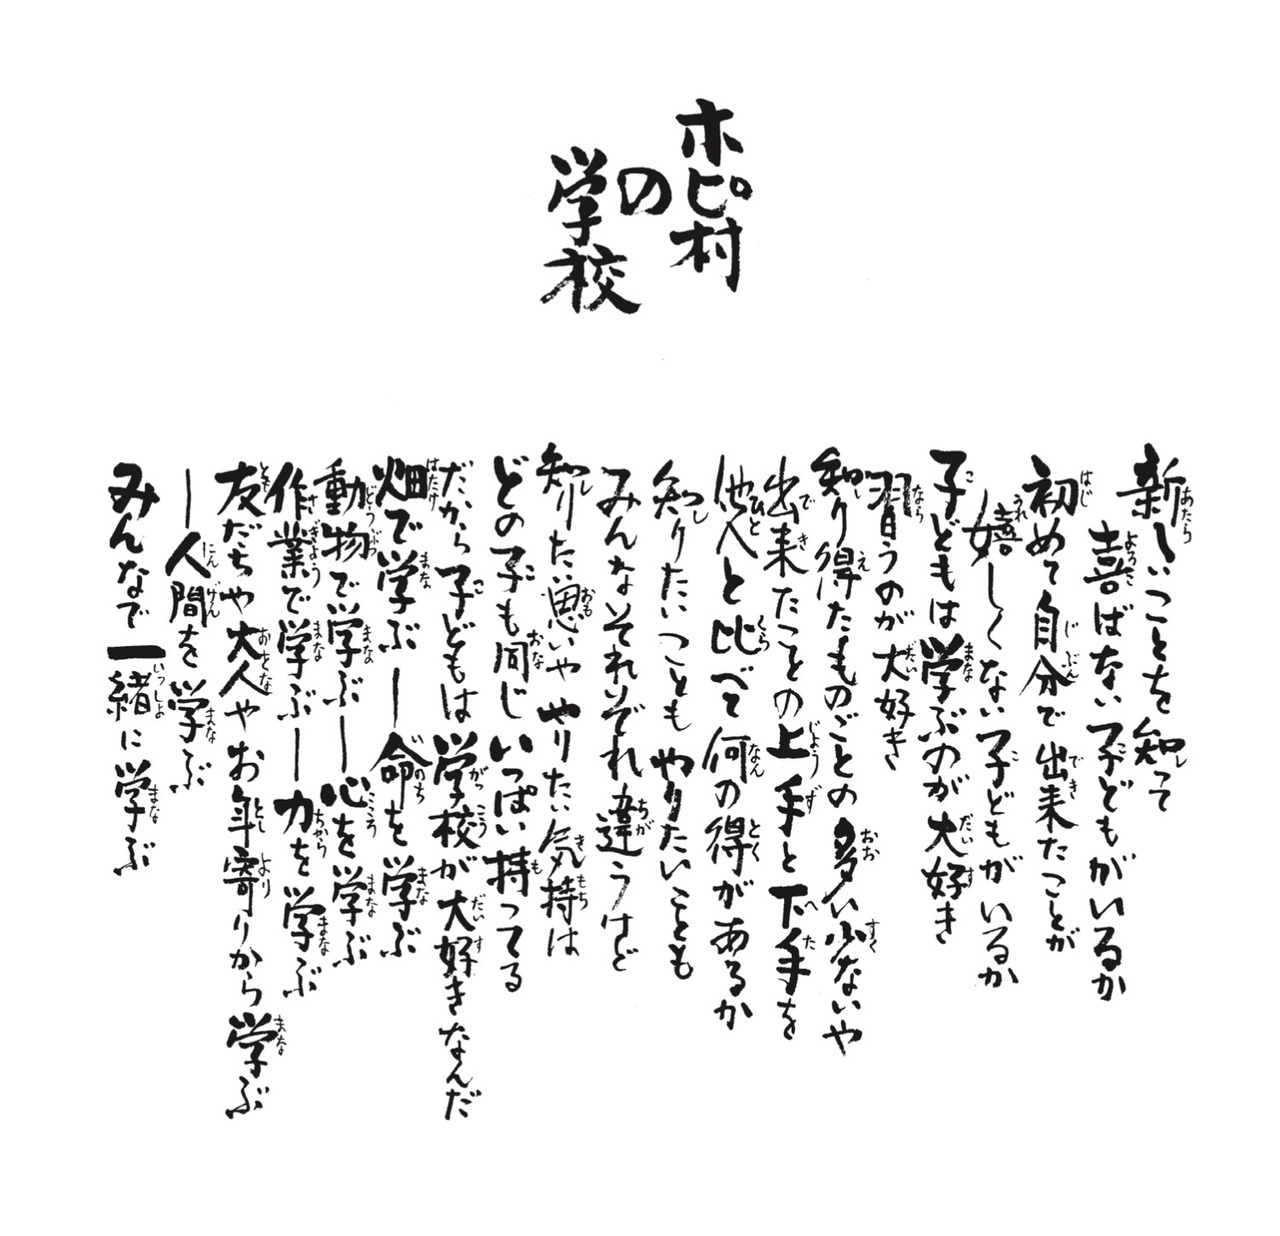 ホピ村
の
学校
新しいことを知って
喜ばない子どもがいるか
初めて自分で出来たことが
嬉しくない子どもがいるか
子どもは学ぶのが大好き
習うのが大好き
知り得たものごとの多い少ないや
出来たことの上手と下手を
他人と比べて何の得があるか
知りたいことも やりたいことも
みんなそれぞれ違うけど
知りたい思いや やりたい気持は
どの子も同じ いっぱい持ってる
だから子どもは 学校が大好きなんだ
畑で学ぶ―命を学ぶ
動物で学ぶ―心を学ぶ
作業で学ぶ―力を学ぶ
友だちや大人やお年寄りから学ぶ
―人間を学ぶ
みんなで一緒に学ぶ